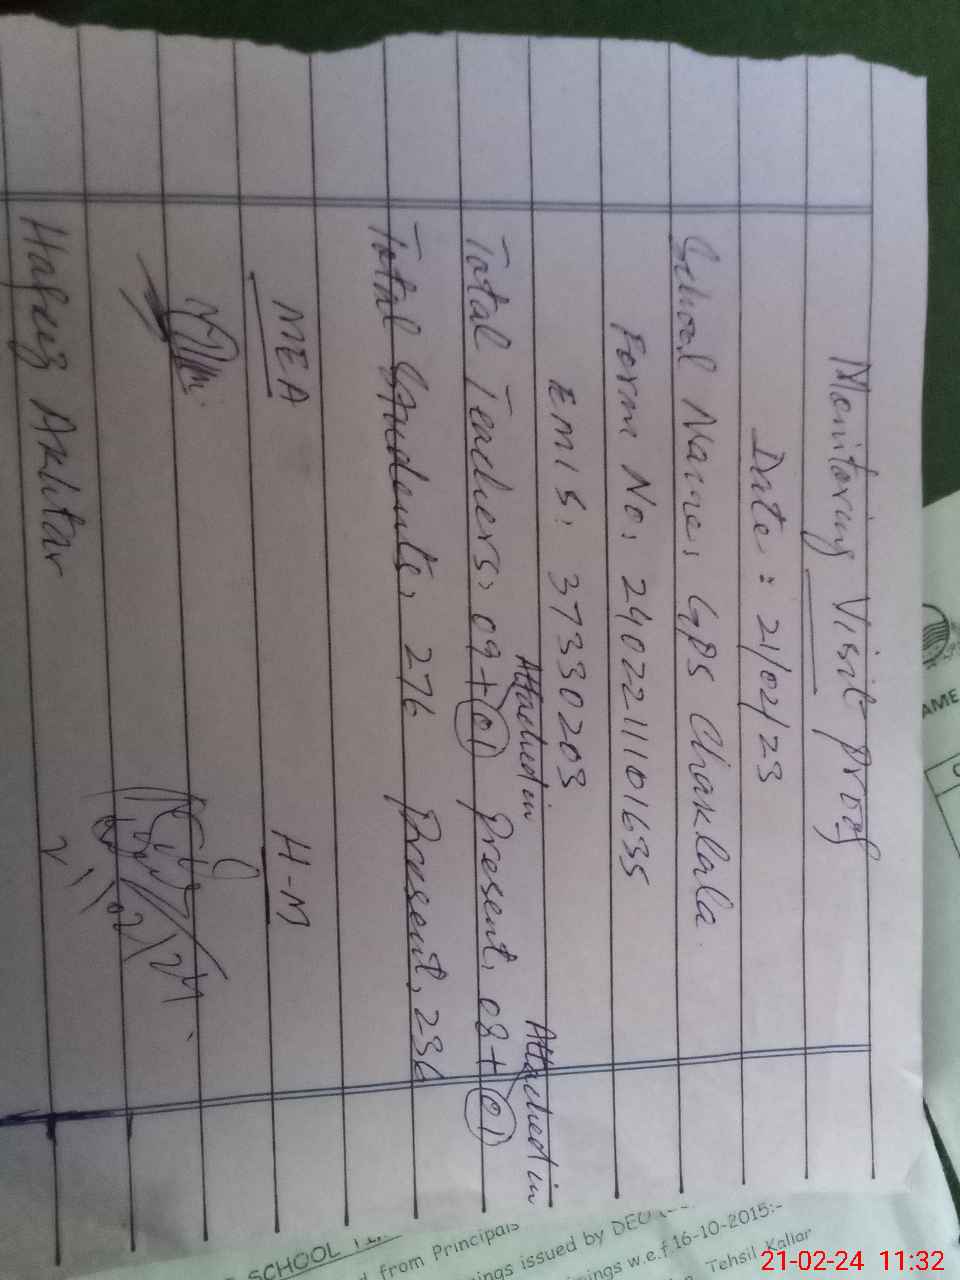 Monitoring Visit proof
Date: = 21/02/23
School Name: GPS Chaklala.
Form No: 2402211101635
EMIS: 37330203
Attached in Attached in
Total Teachers: 09+01 Present, 08+01
Total Students, 276 Present, 236
MEA H-M
Hafeez Akhtar
AME
SCHOOL
from Principals
ings issued by DEO
mings w.e.f.16-10-2015:-
Tehsil Kallar
21-02-24 11:32